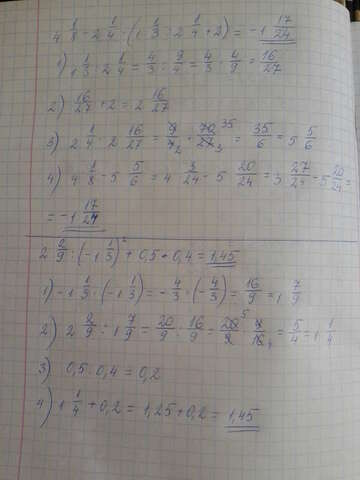 4 1/8 - 2 1/4 · (1 1/3 : 2 1/4 + 2) = -1 17/24
1) 1 1/3 : 2 1/4 = 4/3 : 9/4 = 4/3 · 4/9 = 16/27
2) 16/27 + 2 = 2 16/27
3) 2 1/4 · 2 16/27 = 9/4 2 · 70/27 3 35 = 35/6 = 5 5/6
4) 4 1/8 - 5 5/6 = 4 3/24 - 5 20/24 = 3 27/24 - 5 20/24 =
= -1 17/24
2 2/9 : (-1 1/3)² + 0,5 · 0,4 = 1,45
1) -1 1/3 · (-1 1/3) = -4/3 · (-4/3) = 16/9 = 1 7/9
2) 2 2/9 : 1 7/9 = 20/9 : 16/9 = 20/9 5 · 9/16 4 = 5/4 = 1 1/4
3) 0,5 · 0,4 = 0,2
4) 1 1/4 + 0,2 = 1,25 + 0,2 = 1,45